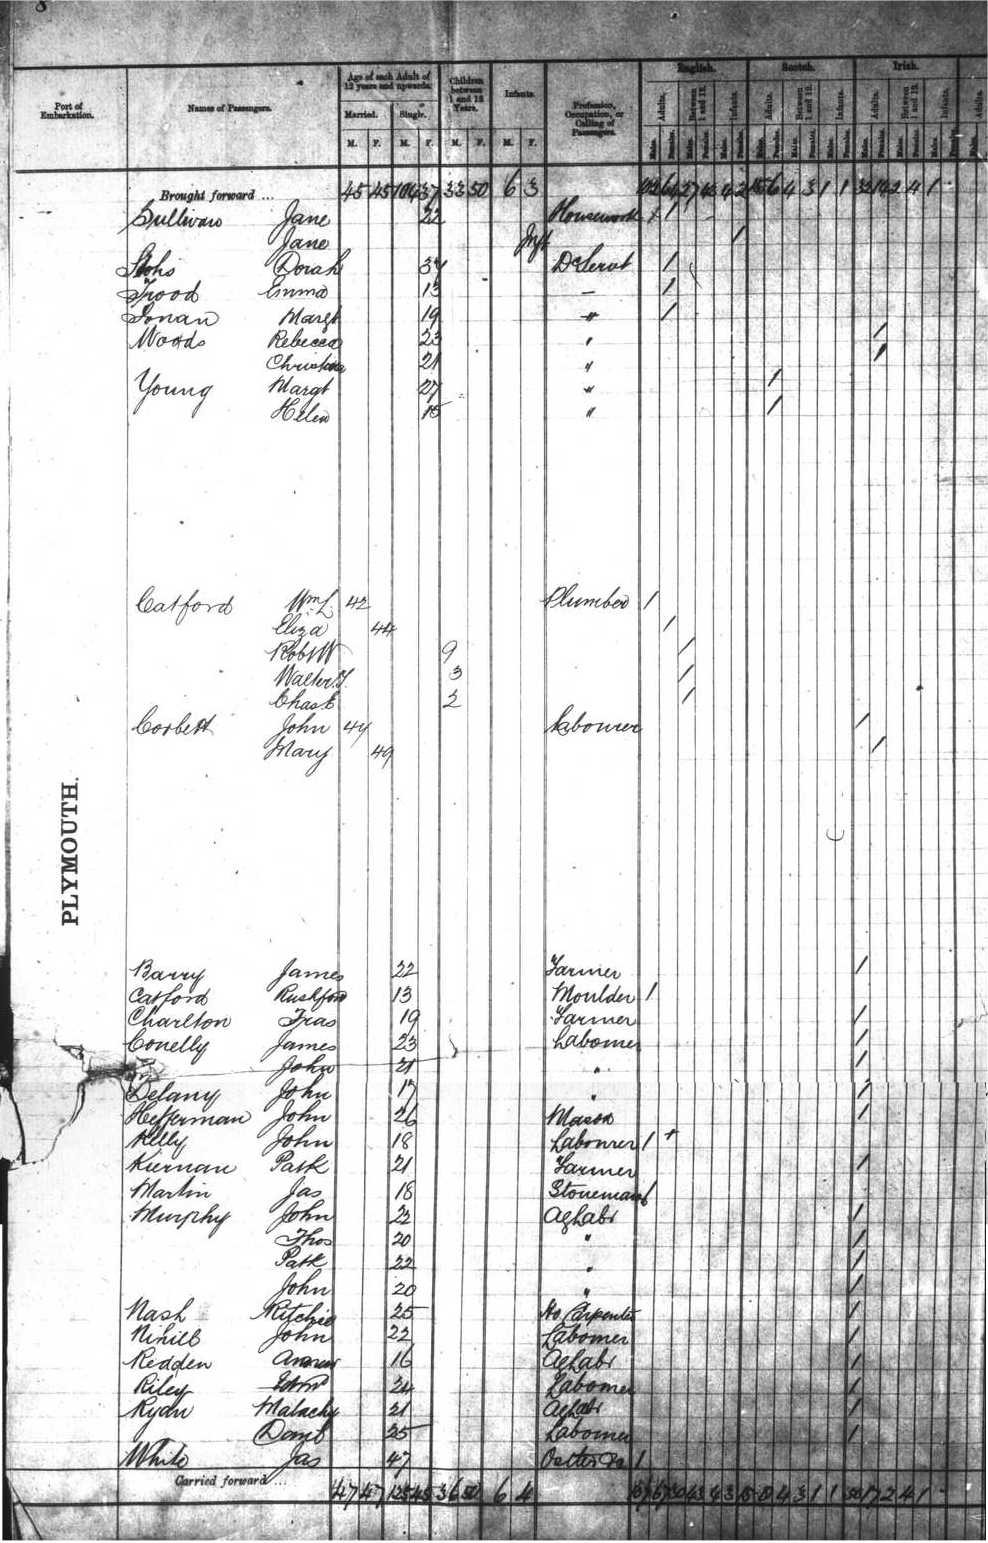 8
Port of Embarkation.
Names of Passengers.
Age of each Adult of 12 years and upwards.
Married. Single.
M. F. M. F.
Children between 1 and 12 Years.
M. F.
Infants.
M. F.
Profession, Occupation, or Calling of Passengers.
English. Scotch. Irish.
Adults. Between 1 and 12. Infants. Adults. Between 1 and 12. Infants. Adults. Between 1 and 12. Infants. Adults.
Brought forward ... 45 45 106 37 33 50 6 3
Sullivan Jane 22 Housework 1
Jane Inft 1
Dorah 37 D Servt 1
Trood Emma 13 — 1
Margt 19 " 1
Woods Rebecca 23 " 1
Christina 21 " 1
Young Margt 27 " 1
Helen 15 " 1
Catford Wm L. 42 Plumber 1
Eliza 44 1
Robt W 9 1
Walter 3 1
Chas 2 1
Corbett John 47 Labourer 1
Mary 49 1
PLYMOUTH.
Barry James 22 Farmer 1
Catford Rushford 13 Moulder 1
Charlton Fras 19 Farmer 1
Conelly James 23 Labourer 1
John 21 " 1
Delany John 17 " 1
Hefferman John 26 Mason 1
Kelly John 18 Labourer 1 +
Kiernan Patk 21 Farmer 1
Martin Jas 18 Stoneman 1
Murphy John 22 Ag Labr 1
Thos 20 " 1
Patk 22 " 1
John 20 " 1
Nash Ritchie 25 Ho Carpenter 1
Nihill John 22 Labourer 1
Redden Andrew 16 Ag Labr 1
Riley Edwd 24 Labourer 1
Ryan Malachy 21 Ag Labr 1
25 Labourer 1
White Jas 47 1
Carried forward ... 47 47 125 45 36 50 6 4